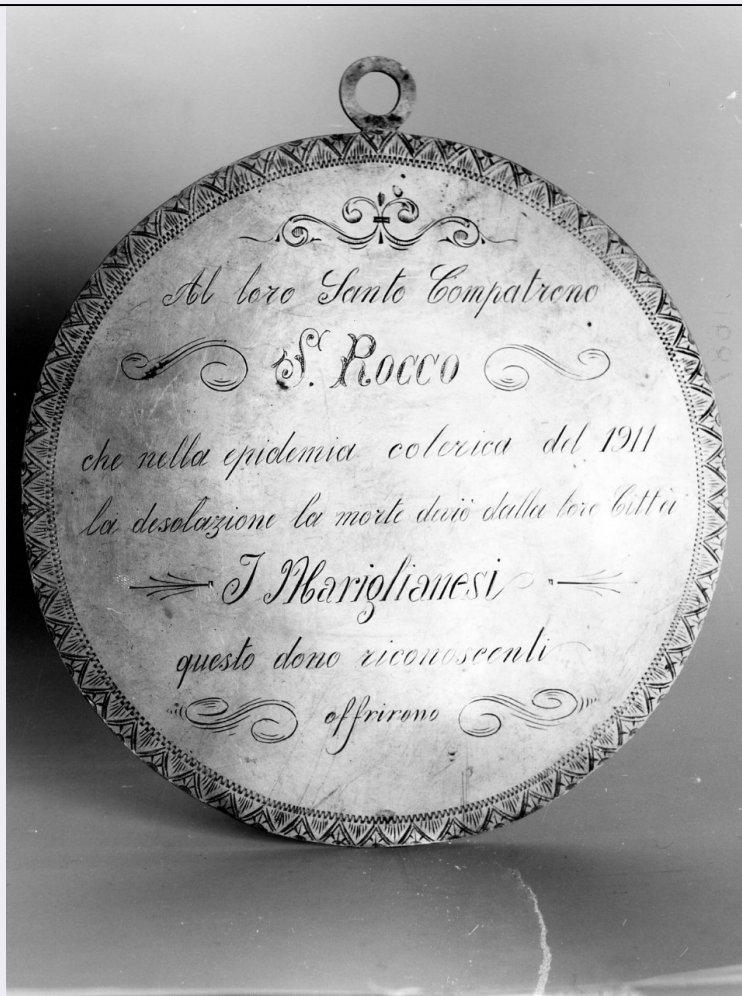 Al loro Santo Compatrono
S. Rocco
che nella epidemia colerica del 1911
la desolazione la morte deviò dalla loro Città
I Mariglianesi
questo dono riconoscenti
offrirono